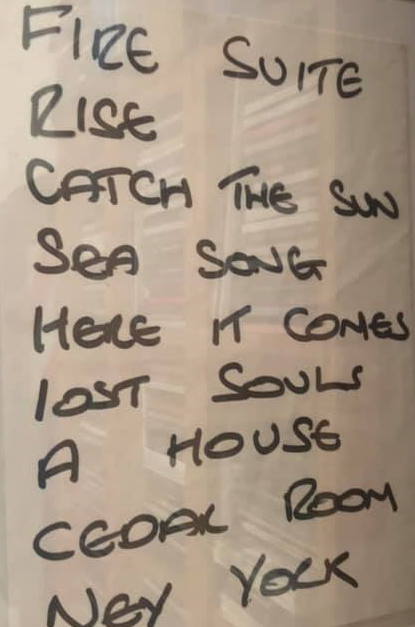 FIRE SUITE
RISE
CATCH THE SUN
SEA SONG
HERE IT COMES
LOST SOULS
A HOUSE
CEDAR ROOM
NEY YORK